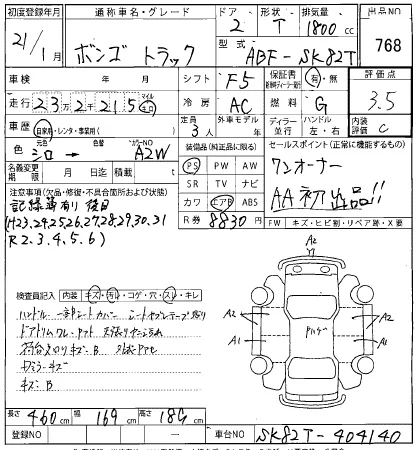 初度登録年月 通称車名・グレード ドア 形状 排気量 出品NO
21/1月 ボンゴ トラック 2 T 1800cc 768
型式 ABF-SK82T
車検 年 月 シフト F5 保証書 有・無 評価点
走行 23万2215 マイル キロ 冷房 AC 燃料 G 3.5
車歴 自家用・レンタ・事業用 定員 3人 外車モデル 年 ディーラー 並行 ハンドル 左・右 内装評価 C
元色 シロ → 色替 カラーNO A2W 装備品(純正品に限る) セールスポイント(正常に機能するもの)
名義変更期限 月 日迄 積載 t PS PW AW ワンオーナー
注意事項(欠品・修復・不具合箇所および状態) SR TV ナビ AA初出品!!
記録簿有り 後日 カワ エアB ABS
(H23,24,25,26,27,28,29,30,31 R券 8830円
R2.3.4.5.6) FW キズ・ヒビ割・リペア跡・X要
A2
検査員記入 内装 キズ・汚レ・コゲ・穴・スレ・キレ
ハンドル一部 シートカバー
A2 A2
A1 A1
キズB
キズB
長さ 460cm 幅 169cm 高さ 186cm
登録NO ― 車台NO SK82T-404140